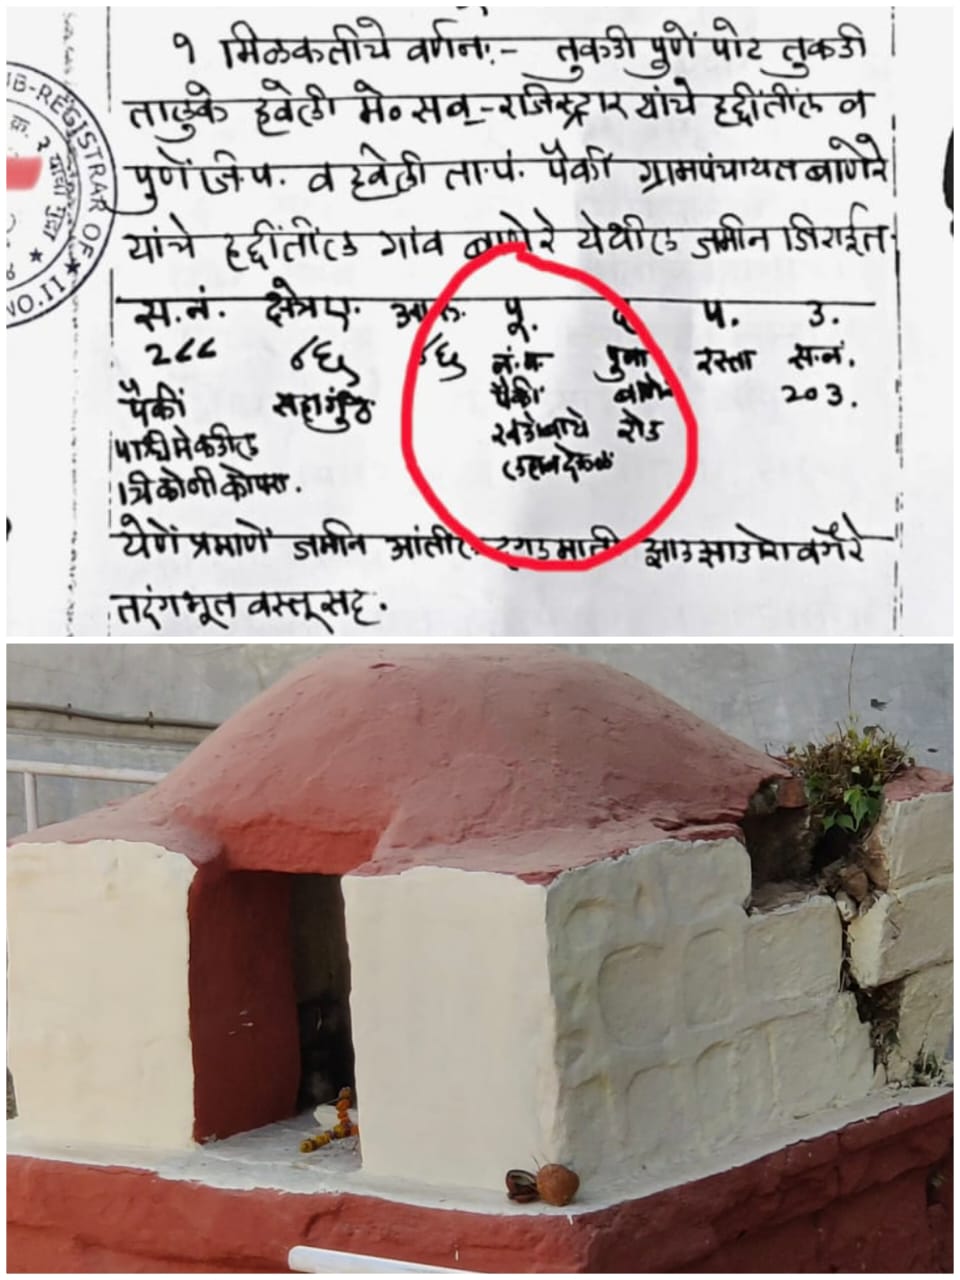 १ मिळकतीचे वर्णन:- तुकडी पुणें पोट तुकडी
तालुके हवेली मे० सब-रजिस्ट्रार यांचे हद्दींतील व
पुणें जि.प. व हवेली ता.पं. पैकीं ग्रामपंचायत बाणेरे
यांचे हद्दींतील गांव बाणेरे येथील जमीन जिराईत
स.नं. क्षेत्र ए. पू. प. उ.
२८८ ४६ ४६ पुना रस्ता स.नं.
पैकीं पैकीं बाणेर २०३.
खंडोबाचे रोड
पश्चिमेकडील लहान देऊळ
त्रिकोणी कोपरा.
येणें प्रमाणें जमीन आंतील दगड माती झाड झाडोरा वगैरे
तरंगभूत वस्तूसह.
SUB-REGISTRAR OF
NO.II